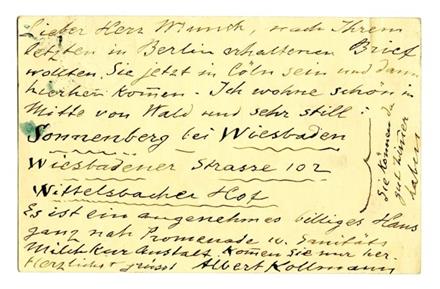 Lieber Herr Wunsch, nach Ihrem
letzten in Berlin erhaltenen Brief
wollten Sie jetzt in Cöln sein und dann
hierher komen. Ich wohne schön in
Mitte von Wald und sehr still:
Sonnenberg bei Wiesbaden
Wiesbadener Strasse 102
Wittelsbacher Hof
Es ist ein angenehmes billiges Haus
ganz nah Promenade u. Sanitäts
Milch Kur Anstalt. Komen Sie nur her.
Herzlichst grüsst Albert Kollmann
Sie können da
gut Zimer
haben